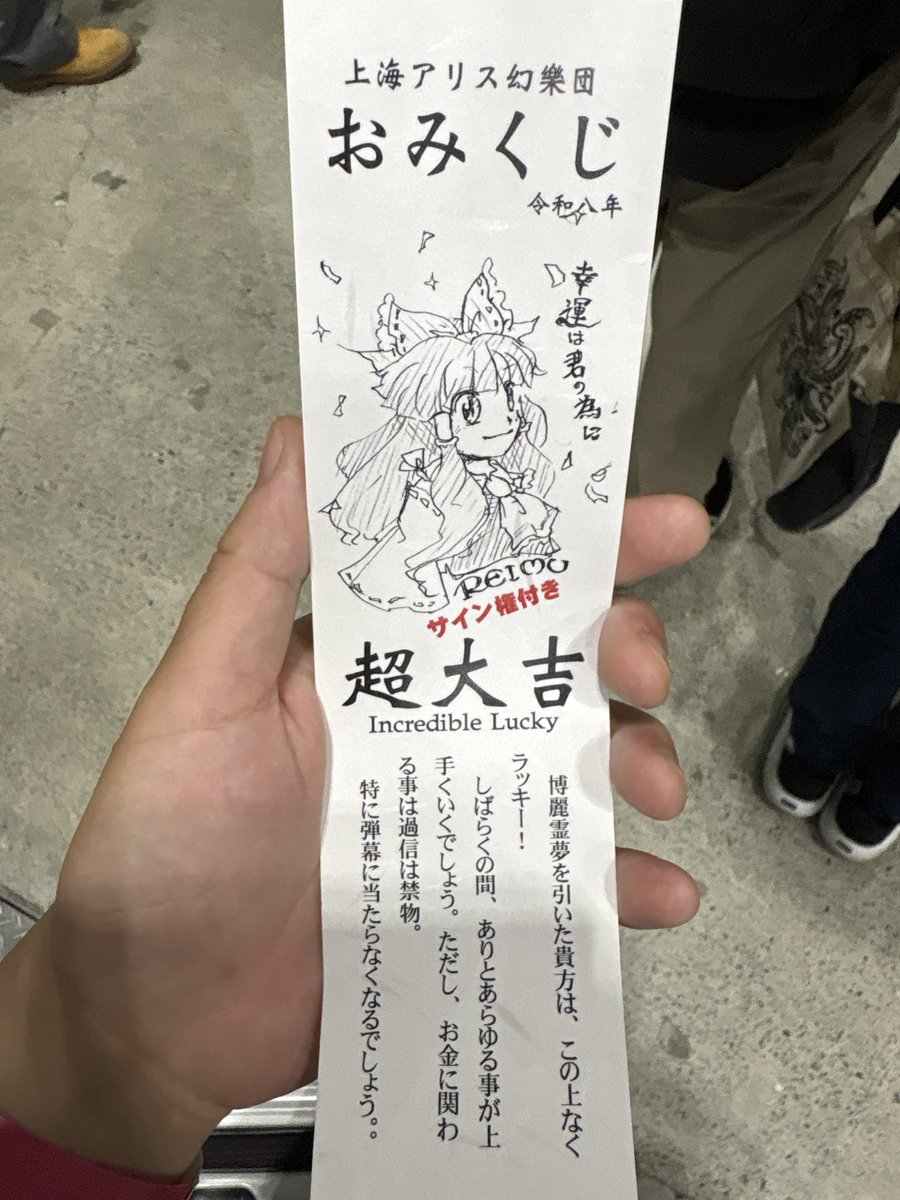 上海アリス幻樂団
おみくじ
令和八年
幸運は君の為に
REIMU
サイン権付き
超大吉
Incredible Lucky
博麗霊夢を引いた貴方は、この上なく
ラッキー！
しばらくの間、ありとあらゆる事が上
手くいくでしょう。ただし、お金に関わ
る事は過信は禁物。
特に弾幕に当たらなくなるでしょう。。